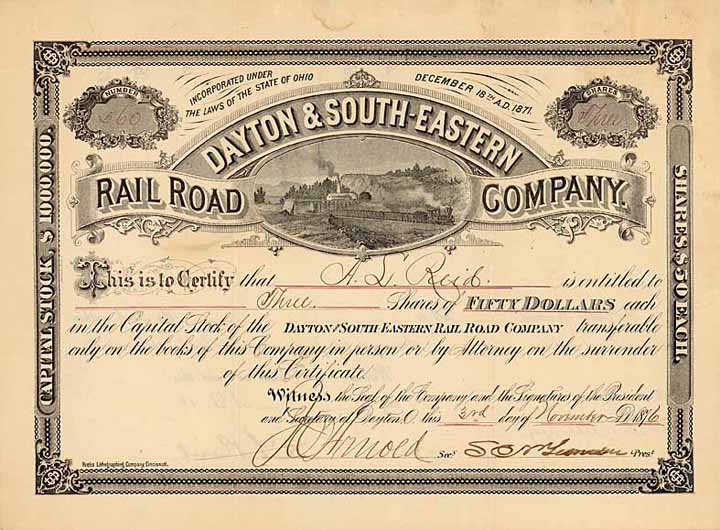 NUMBER
INCORPORATED UNDER
THE LAWS OF THE STATE OF OHIO
DECEMBER 18TH A.D. 1871.
SHARES
Three
DAYTON & SOUTH-EASTERN
RAIL ROAD COMPANY.
CAPITAL STOCK, $ 1000.000.
SHARES $50 EACH.
This is to Certify that A. L. Reid. is entitled to
Three Shares of FIFTY DOLLARS each
in the Capital Stock of the DAYTON AND SOUTH EASTERN RAIL ROAD COMPANY transferable
only on the books of this Company in person or by Attorney on the surrender
of this Certificate.
Witness the Seal of the Company and the Signatures of the President
and Secretary at Dayton O. this 3rd day of November A.D. 1876
Arnold Secy. Prest.
Krebs Lithographing Company Cincinnati.